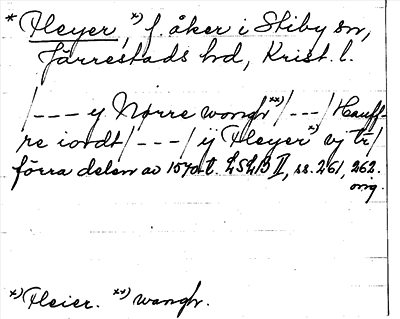 * Pleyer, x) f. åker i Stiby sn,
Järrestads hd, Krist. l.
/--- y Nørre wongh xx) /---/ Hauff-
re iordt /---/ ij Pleyer x) vj tr/
förra delen av 1570-t. LSLB II, ss. 261, 262.
orig.
x) Pleier. xx) wangh.